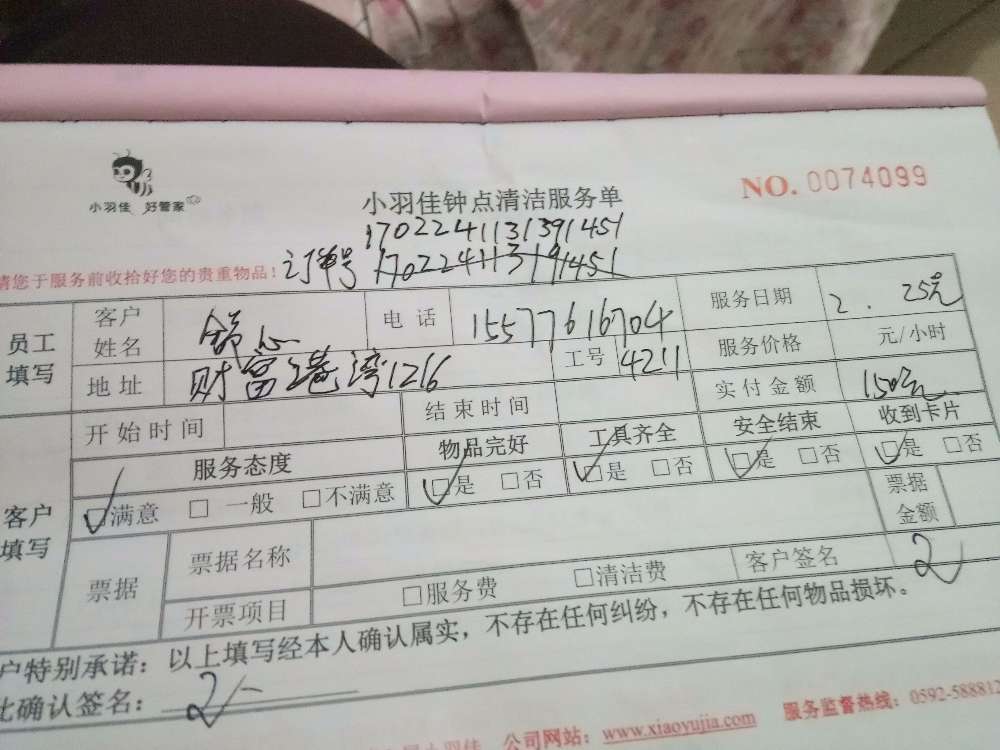 小羽佳 好管家
小羽佳钟点清洁服务单
NO. 0074099
1702241131391451
请您于服务前收拾好您的贵重物品！
订单号 170224113191451
员工填写
客户姓名
电话 15577616704
服务日期 2. 25
地址 财富港湾1216
工号 4211
服务价格 元/小时
开始时间
结束时间
实付金额 150元
客户填写
服务态度 物品完好 工具齐全 安全结束 收到卡片
□满意 □一般 □不满意 □是 □否 □是 □否 □是 □否 □是 □否
票据
票据名称
票据金额
开票项目 □服务费 □清洁费 客户签名
户特别承诺：以上填写经本人确认属实，不存在任何纠纷，不存在任何物品损坏。
此确认签名：
公司网站：www.xiaoyujia.com
服务监督热线：0592-588812